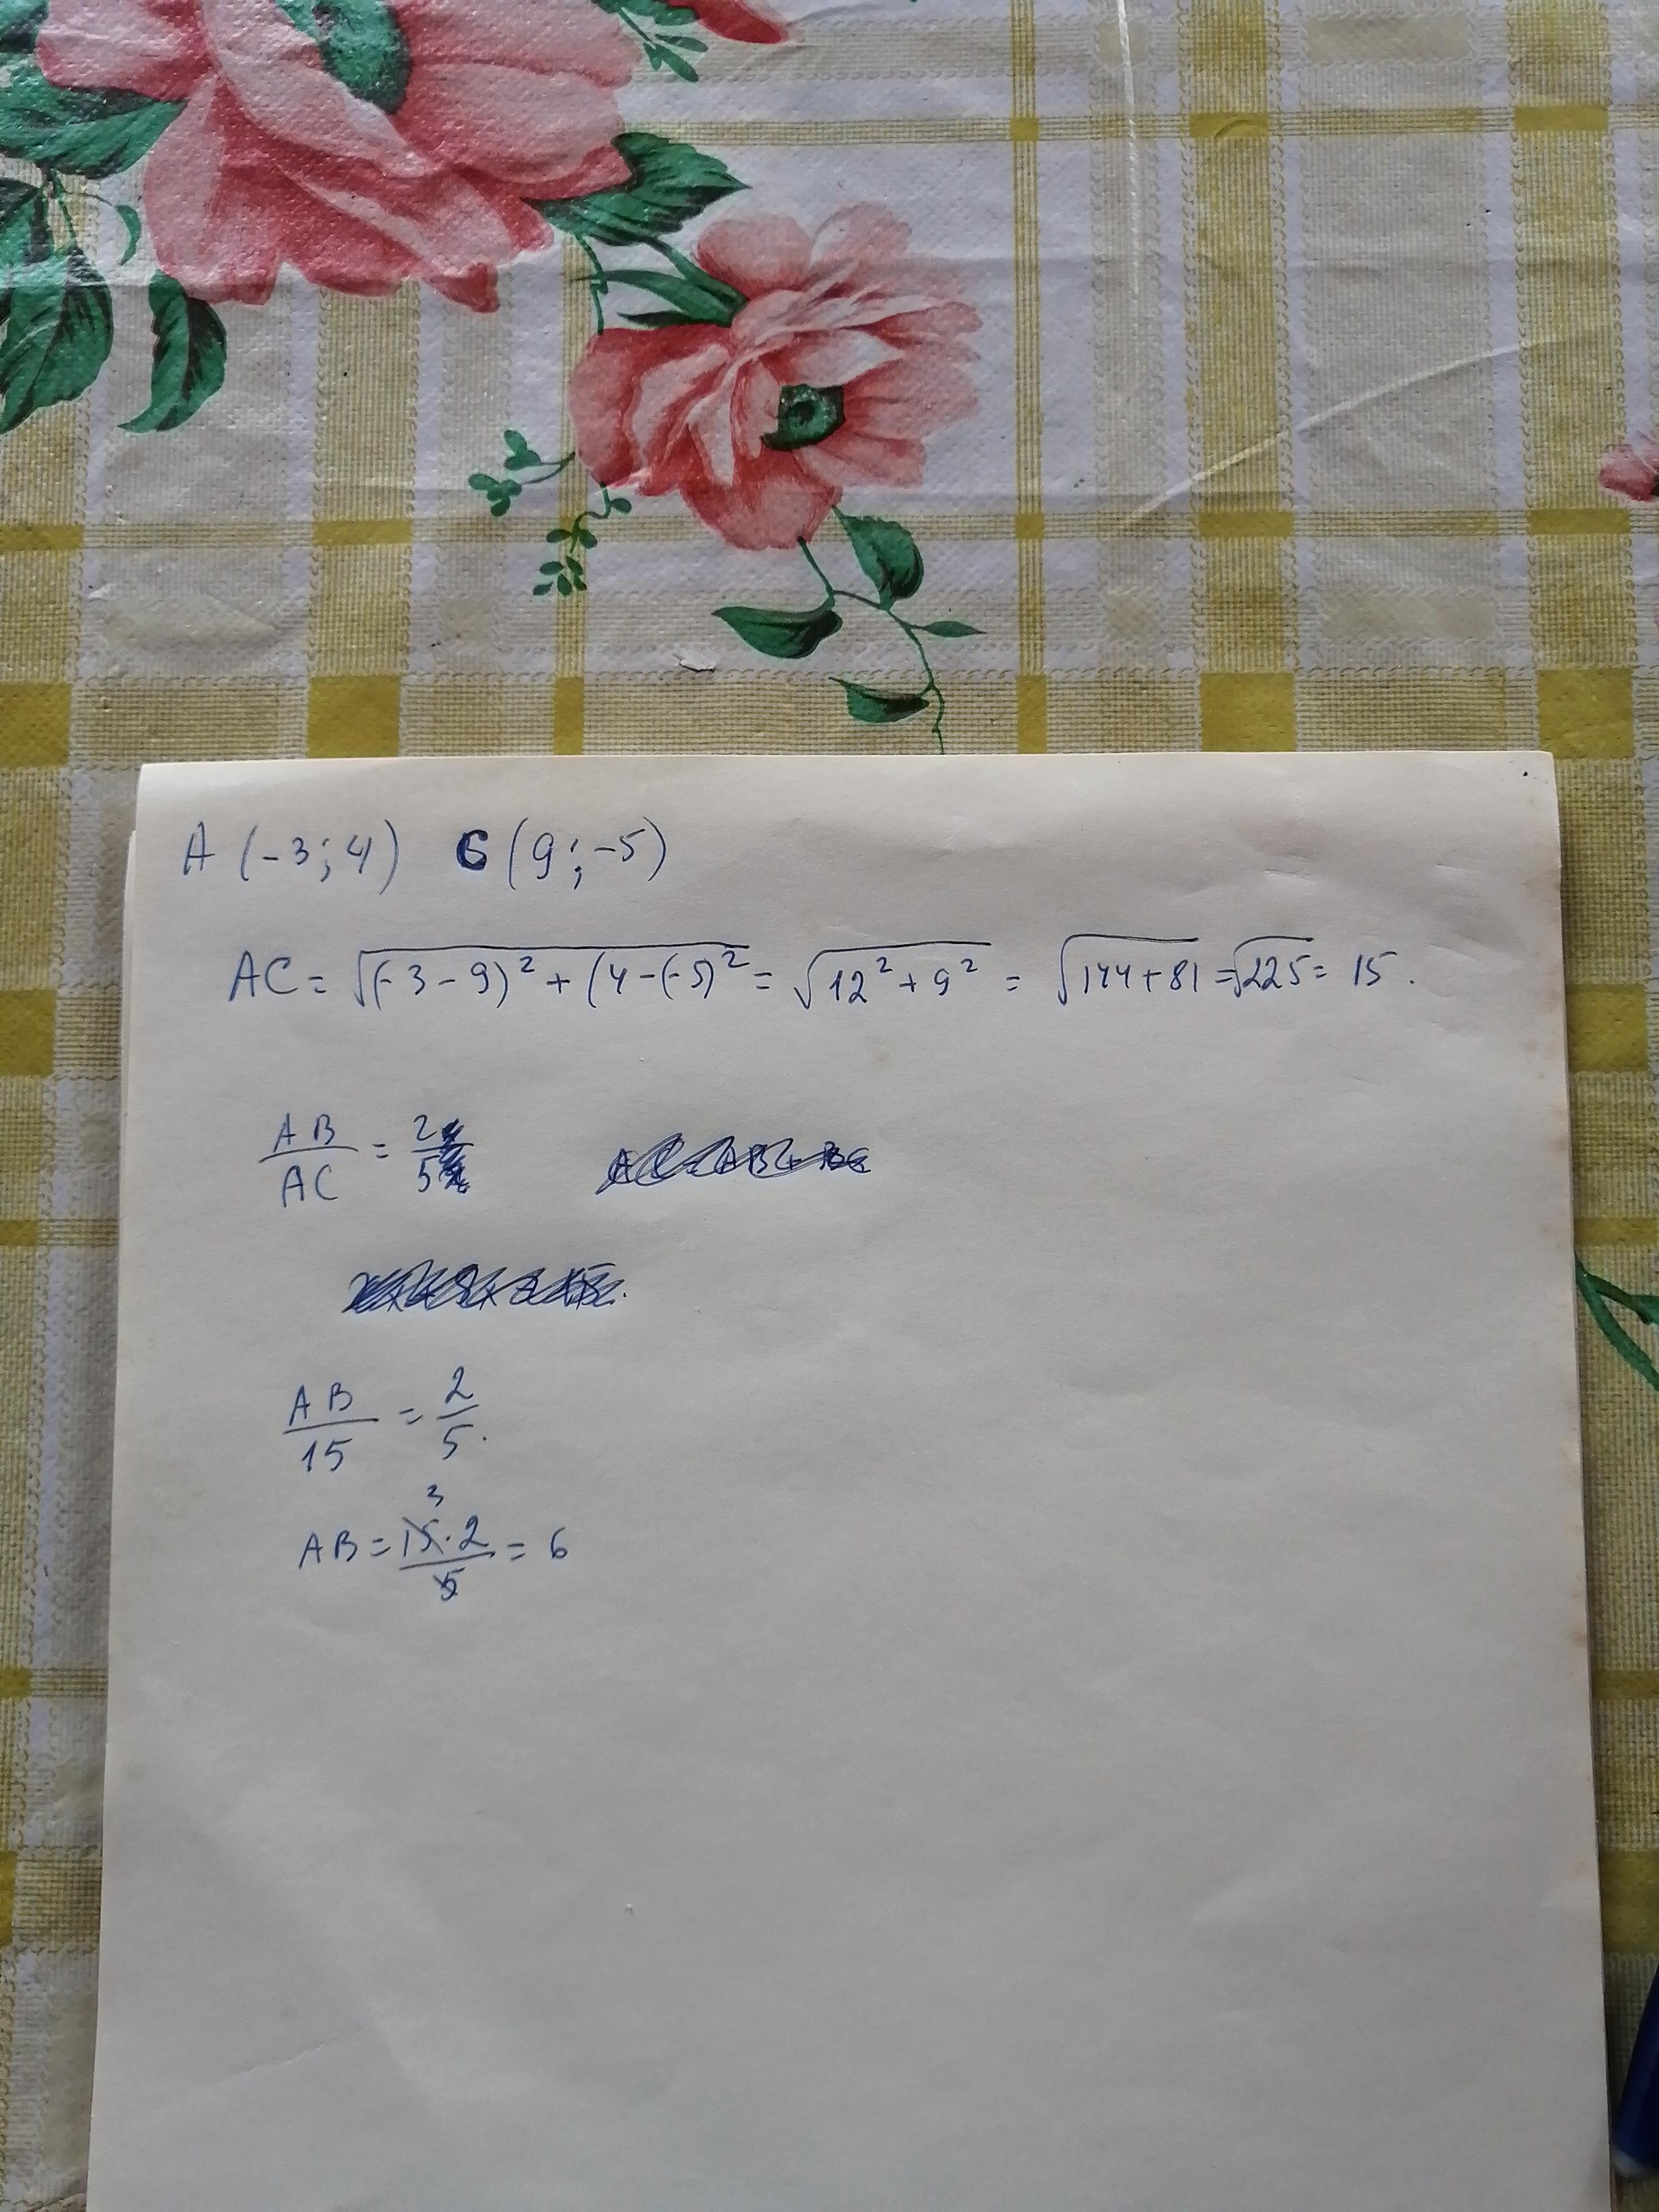 A (-3; 4) C (9; -5)
AC = √(-3-9)² + (4-(-5)² = √12² + 9² = √144+81 = √225 = 15.
AB/AC = 2/5
AB/15 = 2/5.
3
AB = 15·2/5 = 6